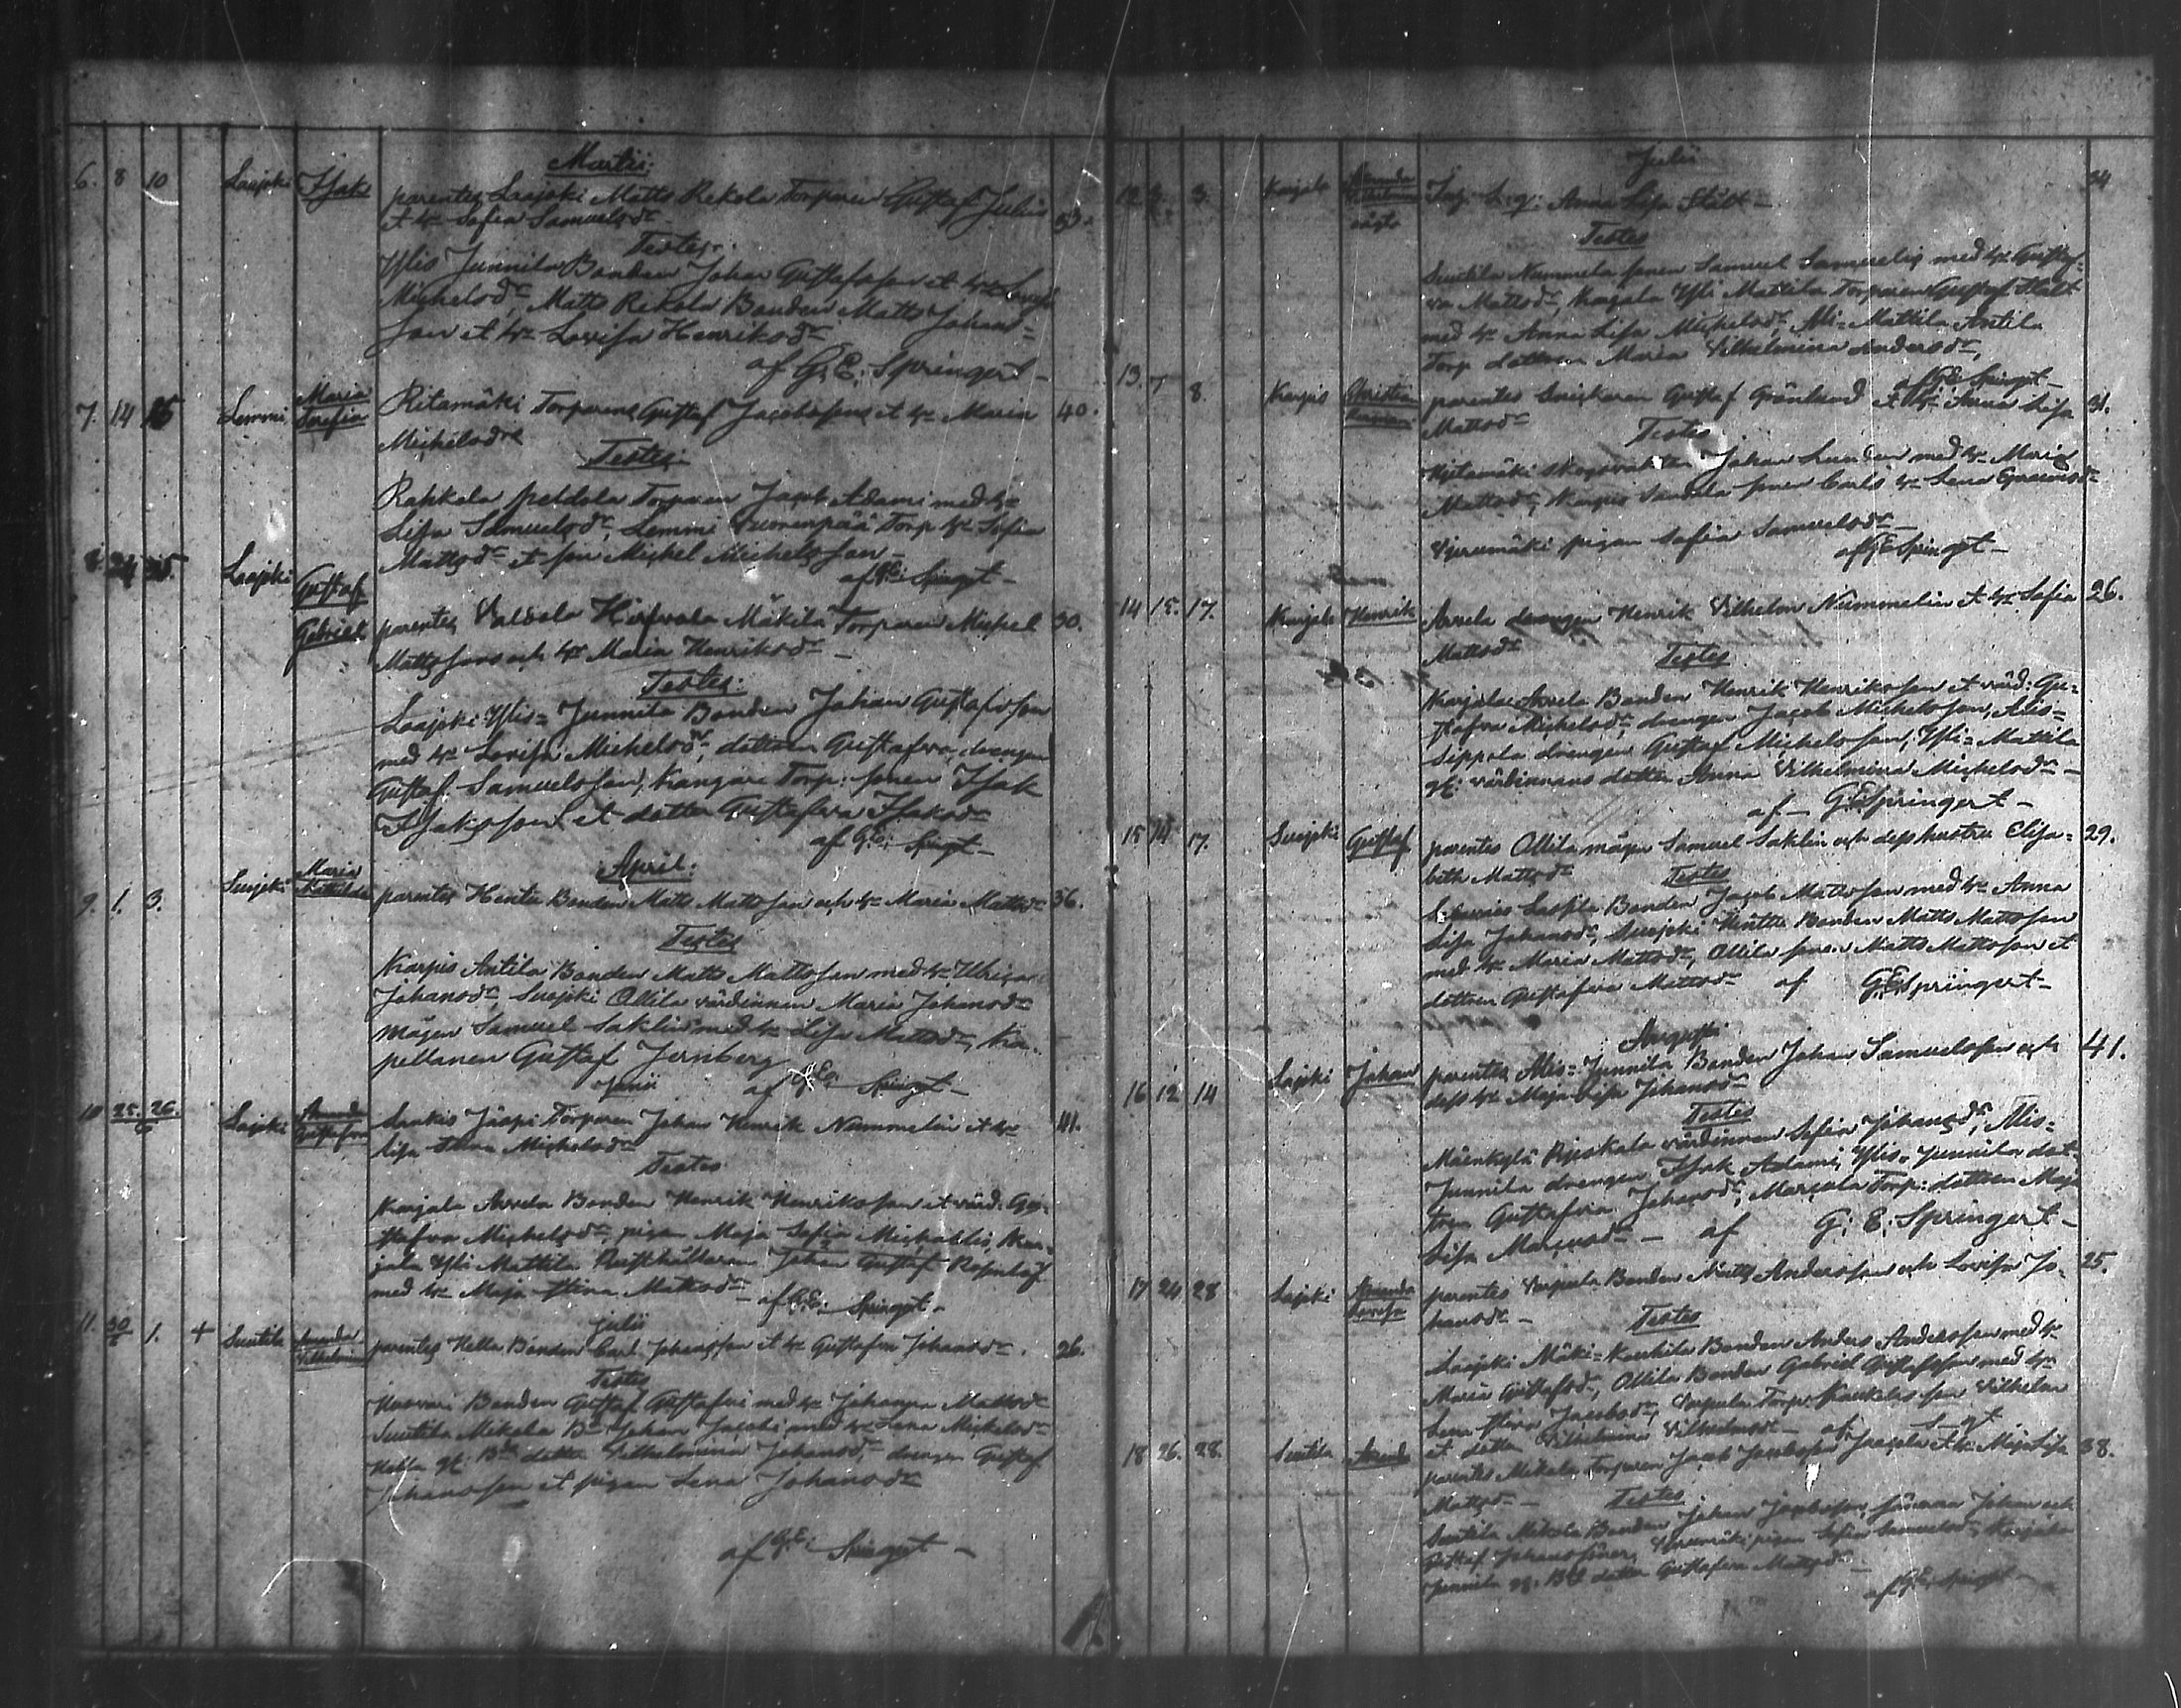 Martii:
6. 8 10 Laajoki Isak parentes Laajoki Matts Rekola Torparen Gustaf Julin 53.
et hr Sofia Samuelsdr
Testes:
Ylis Junnila Bonden Johan Gustafsson et hr Lovisa
Michelsdr, Matts Rekola Bonden Matts Johans=
son et hr Lovisa Henriksdr
af G. E. Springert
7. 14 15 Lemmi Maria Serafia Ritamäki Torparens Gustaf Jacobssons et hr Maria 40.
Michelsdr
Testes:
Rahkola Peldola Torparen Jacob Adami med hr
Lisa Samuelsdr, Lemmi Vuorenpää Torp hr Sofia
Mattsdr et son Michel Michelsson
af G. E. Springert
8. 24 25. Laajoki Gustaf Gabriel parentes Valdola Hirfvola Mäkilä Torparen Michel 30.
Mattssons och hr Maria Henriksdr
Testes:
Laajoki Ylis= Junnila Bonden Johan Gustafsson
med hr Lovisa Michelsdr, dottren Gustafva, drengen
Gustaf Samuelsson, Kangare Torp: sonen Isak
Isaksson et dotter Gustafva Isaksdr
af G. E. Springert
April:
9. 1. 3. Suojoki Maria Mathilda parentes Hentu Bonden Matts Mattsson och hr Maria Mattsdr 36.
Testes
Karpis Antila Bonden Matts Mattsson med hr Ulrica
Johansdr, Suojoki Ollila värdinnan Maria Johansdr
mågen Samuel Saklin med hr Lisa Mattsdr, Ka-
pellanen Gustaf Jernberg
Junii af G. E. Springert
10 25 26/6 Lajoki Amanda Gustafva Laakis Jaapi Torparen Johan Henrik Nummelin et hr 41.
Lisa Stina Michelsdr
Testes
Karjala Arvela Bonden Henrik Henriksson et värd. Gu-
stafva Michelsdr, pigan Maja Sofia Michaelis, Kar-
jala Yli Mattila Rusthållaren Johan Gustaf Rosnlöf
med hr Maja Stina Mattsdr af G. E. Springert
Julii
11. 30/6 1. + Suutila Amanda Vilhelmina parentes Kella Bonden Carl Johansson et hr Gustafva Johansdr. 26.
Testes
Bonden Gustaf Gustafsi med hr Johanna Mattsdr
Suutila Mikola Bn Johan Jacobi med hr Lena Michelsdr
Kella gf. Bds dotter Vilhelmina Johansdr, drengen Gustaf
Johansson et pigan Lena Johansdr
af G. E. Springert
Julii
12 2. 3. Karjala Amanda oägta Inh. Anna Lisa Stålt 34
Testes
Suutila Nummela sonen Samuel Samuelis med hr Gustaf-
va Mattsdr, Karjala Yli Mattila Torparen Gustaf Stålt
med hr Anna Lisa Michelsdr, Ali=Mattila Antila
Torp dottren Maria Vilhelmina Andersdr,
af G. E. Springert
13 7 8. Karpis Christian parentes Snickaren Gustaf Grönlund et hr Anna Lisa 31.
Mattsdr
Testes
skogsvakten Johan Lunden med hr Maria
Mattsdr, Karpis sonen Carls hr Lena
pigan Sofia Samuelsdr
af G E Springert
14 15. 17. Karjala Henrik Arvela drengen Henrik Vilhelm Nummelin et hr Sofia 26.
Mattsdr
Testes
Karjala Arvela Bonden Henrik Henriksson et värd: Gu=
stafva Michelsdr, drengen Jacob Michelsson, Alis=
Sippola drengen Gustaf Michelsson, Yli=Mattila
gf: värdinnans dotter Anna Vilhelmina Michelsdr
af G E Springert
15 14 17. Suojoki Gustaf parentes Ollila mågen Samuel Saklin och dess hustru Elisa= 29.
beth Mattsdr
Testes
Bonden Jacob Mattsson med hr Anna
Lisa Johansdr, Suojoki Hentu Bonden Matts Mattsson
med hr Maria Mattsdr, Ollila sonen Matts Mattsson et
dottren Gustafva Mattsdr af G. E. Springert
Augusti
16 12 14 Lajoki Johan parentes Alis=Junnila Bonden Johan Samuelsson och 41.
dess hr Maja Lisa Johansdr
Testes
Mäenkylä värdinnan Sofia Johansdr, Alis=
Junnila drengen Isak Adami, Ylis=Junnila dot-
tren Gustafva Johansdr, Torp: dottren Maja
Lisa af G. E. Springert
17 24 28 Lajoki Amanda Lovisa parentes Bonden Matts Andersson och Lovisa Jo- 25.
hansdr
Testes
Laajoki Mäki=Kauhila Bonden Anders Andersson med hr
Maria Gustafsdr, Ollila Bonden Gabriel Gustafsson med hr
Lena Stina Jacobsdr, Torp. son Vilhelm
et dotter Vilhelmina Vilhelmsdr
18 26. 28. Suutila Amanda parentes Mikola Torparen Jacob Jacobsson et hr Maja Lisa 38.
Mattsdr
Testes
Suutila Mikola Bonden Johan Jacobsson, sönerna Johan och
Gustaf Johanssöner, pigan Sofia Samuelsdr, Karjala
Junnila gf. Bds dotter Gustafva Mattsdr
af G. E. Springert